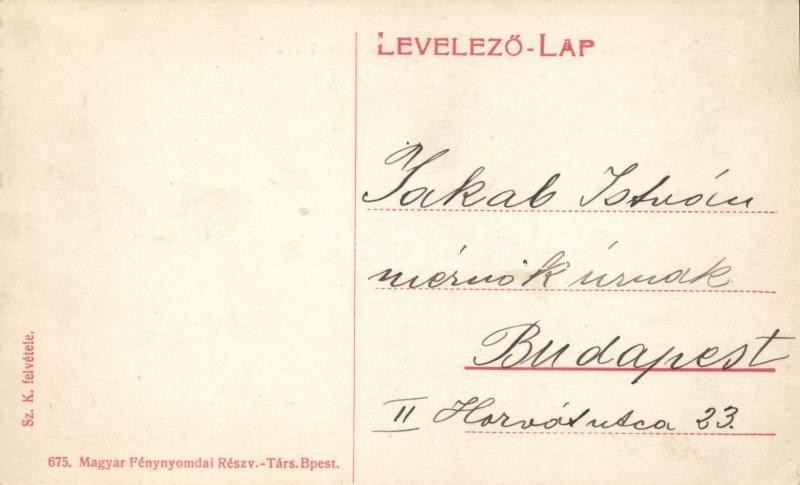 LEVELEZŐ-LAP
Jakab István
mérnök úrnak
Budapest
II Horvát utca 23.
Sz. K. felvétele.
675. Magyar Fénynyomdai Részv.-Társ. Bpest.